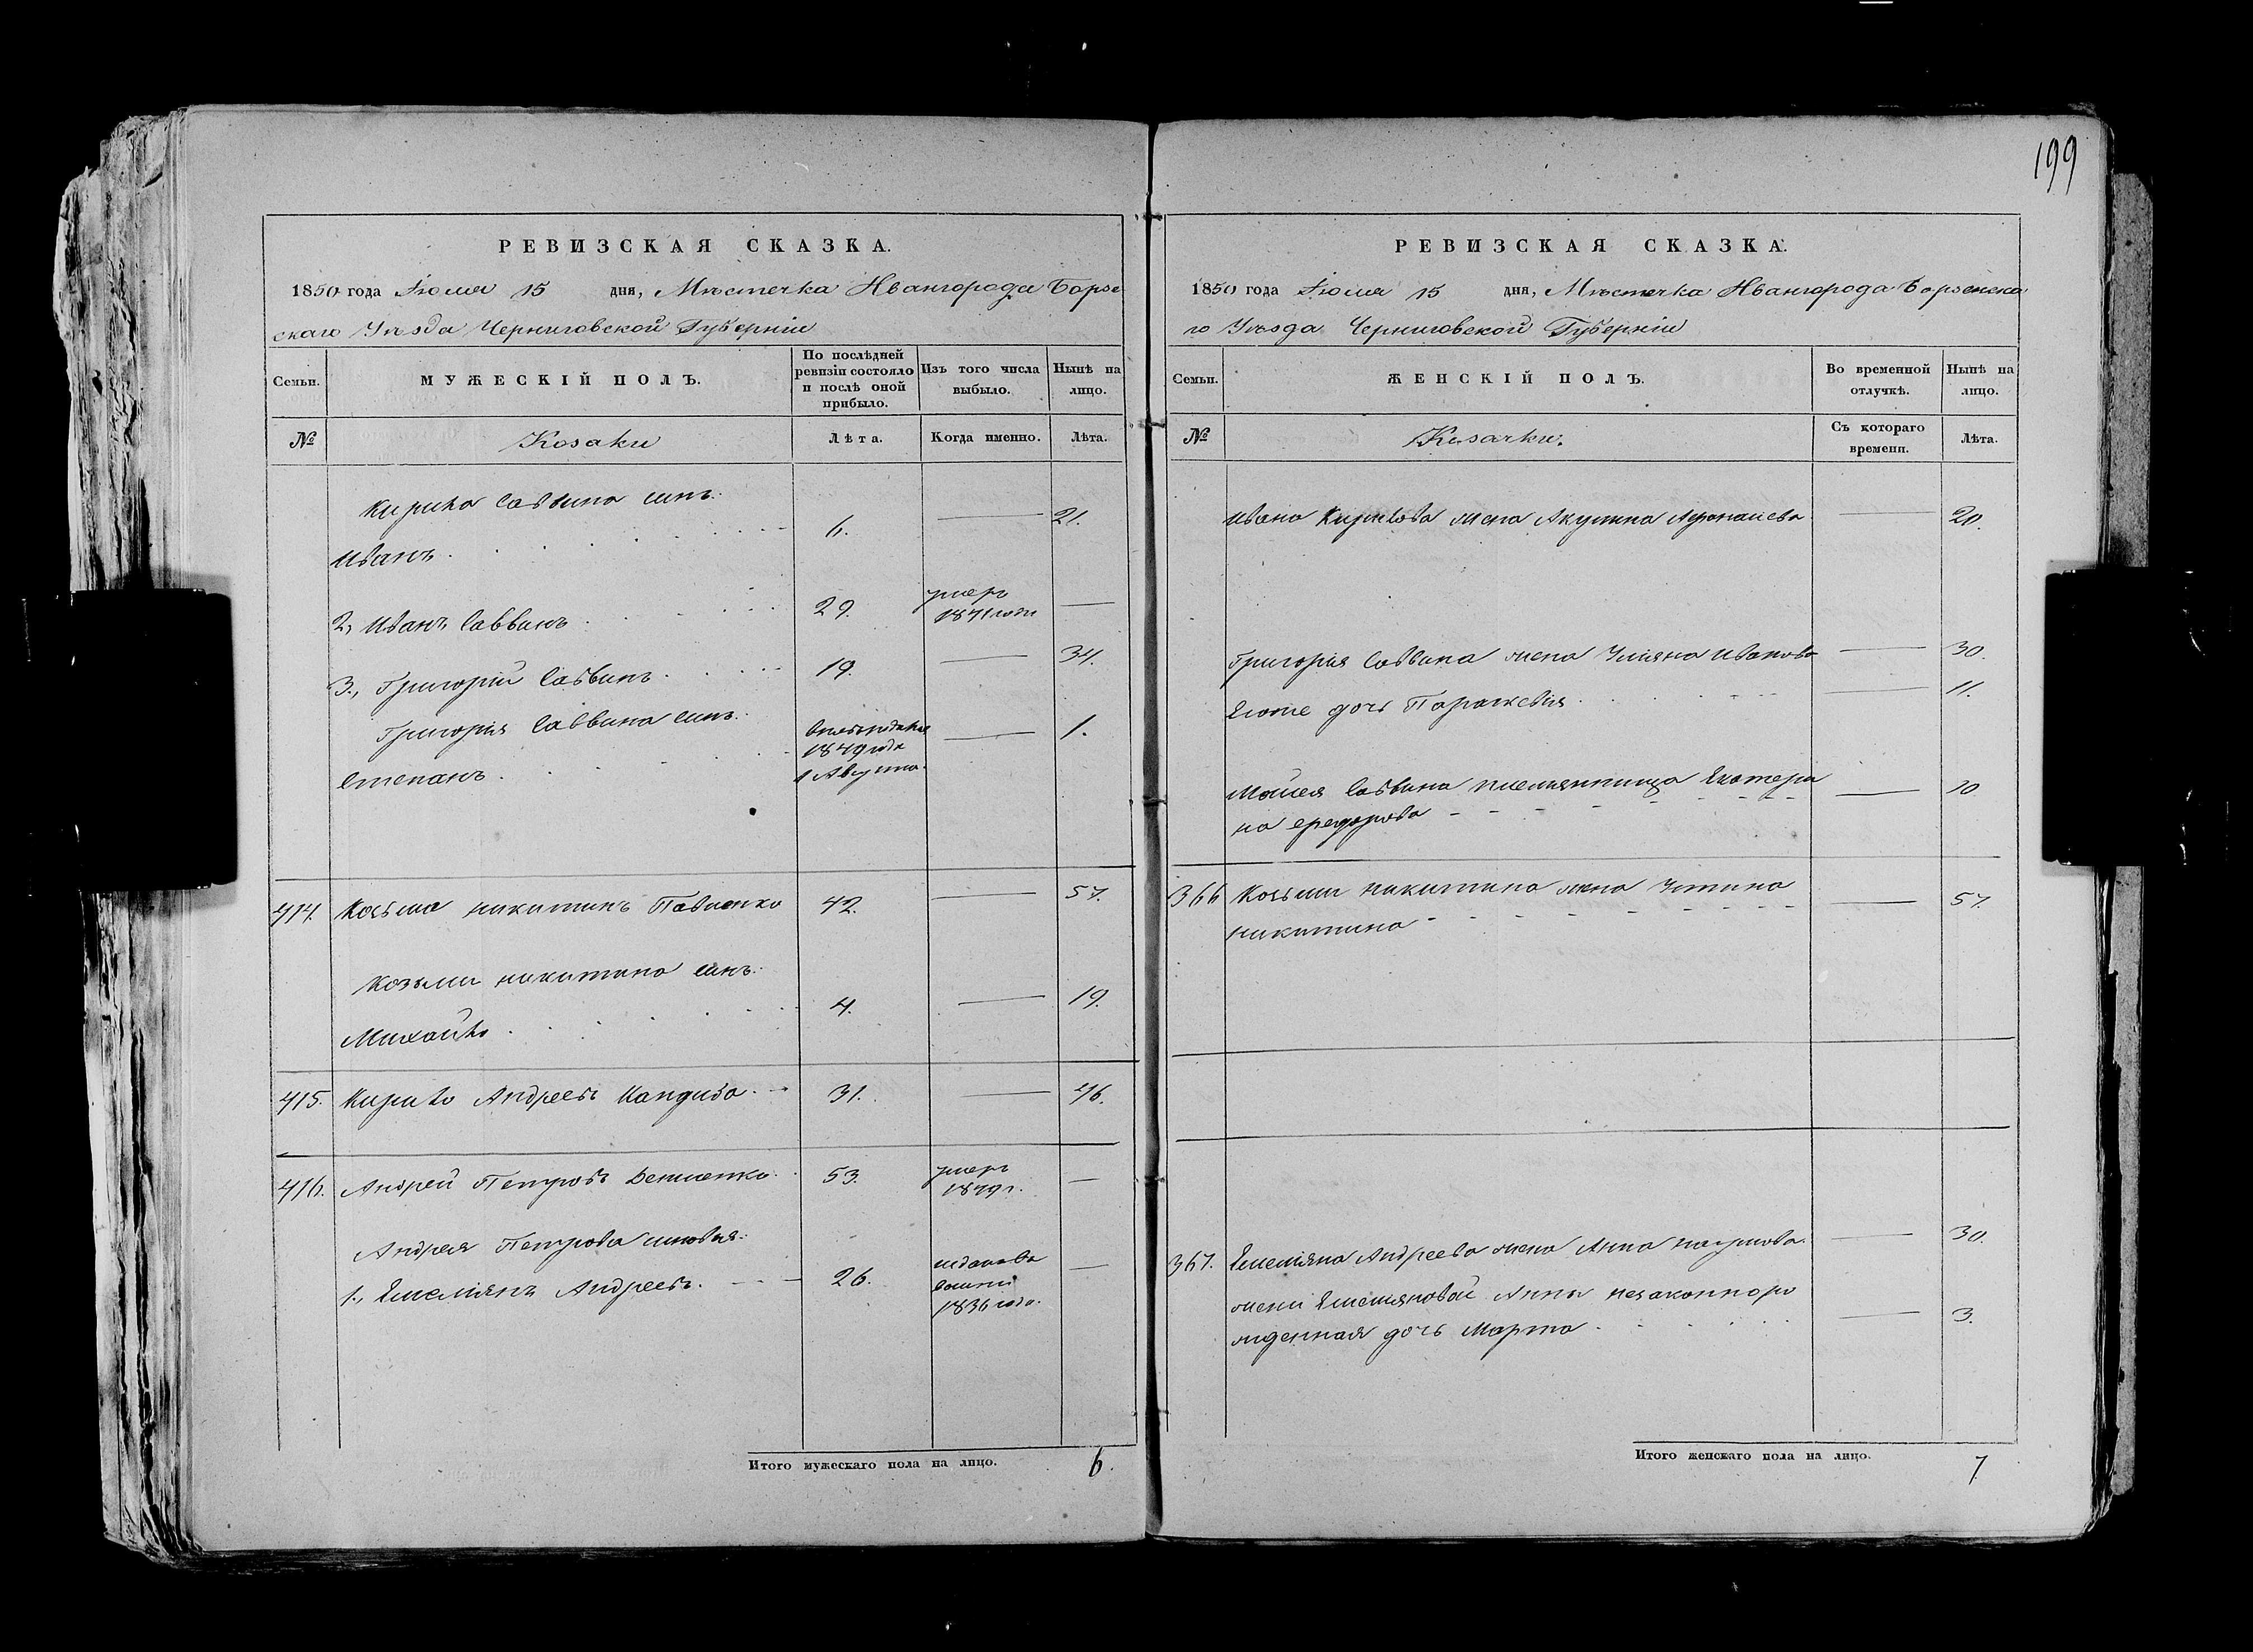 199
РЕВИЗСКАЯ СКАЗКА.
1850 года Июля 15 дня, Мѣстечка Ивангорода Борзе
скаго Уѣзда Черниговской Губерніи
Семьи. МУЖЕСКІЙ ПОЛЪ. По послѣдней ревизіи состояло и послѣ оной прибыло. Изъ того числа выбыло. Нынѣ на лицо.
№ Козаки Лѣта. Когда именно. Лѣта.
Кирила Саввина синъ
Иванъ 6. 21.
2, Иванъ Саввинъ 29. умеръ 1841 года
3., Григорій Саввинъ 19. 34.
Григорія Саввина синъ
Степанъ 1849 года 1 Августа 1.
414. Козьма Никитинъ Павленко 42. 57.
Козьми Никитина синъ
Михайло 4. 19.
415. Кирило Андреевъ 31. 46.
416. Андрей Петровъ 53. умеръ 1849 г.
Андрея Петрова синовья
1., Емелiянъ Андреевъ. 26. 1836 года.
Итого мужескаго пола на лицо. 6.
РЕВИЗСКАЯ СКАЗКА.
1850 года Июля 15 дня, Мѣстечка Ивангорода Борзенска
го Уѣзда Черниговской Губерніи
Семьи. ЖЕНСКІЙ ПОЛЪ. Во временной отлучкѣ. Нынѣ на лицо.
№ Козачки. Съ котораго времени. Лѣта.
Ивана Кирилова жена Акулина Афанасиева 20.
Григорія Саввина жена Уліяна Иванова 30.
Егоже дочь Параскевія 11.
Моисея Саввина племянница Екатери
на Федорова 10
366 Козьми Никитина жена Устина
Никитина 57.
367. Емеліяна Андреева жена Анна Наумова. 30.
жени Емеліяновой Анны незаконноро
жденная дочь Марта 3.
Итого женскаго пола на лицо. 7